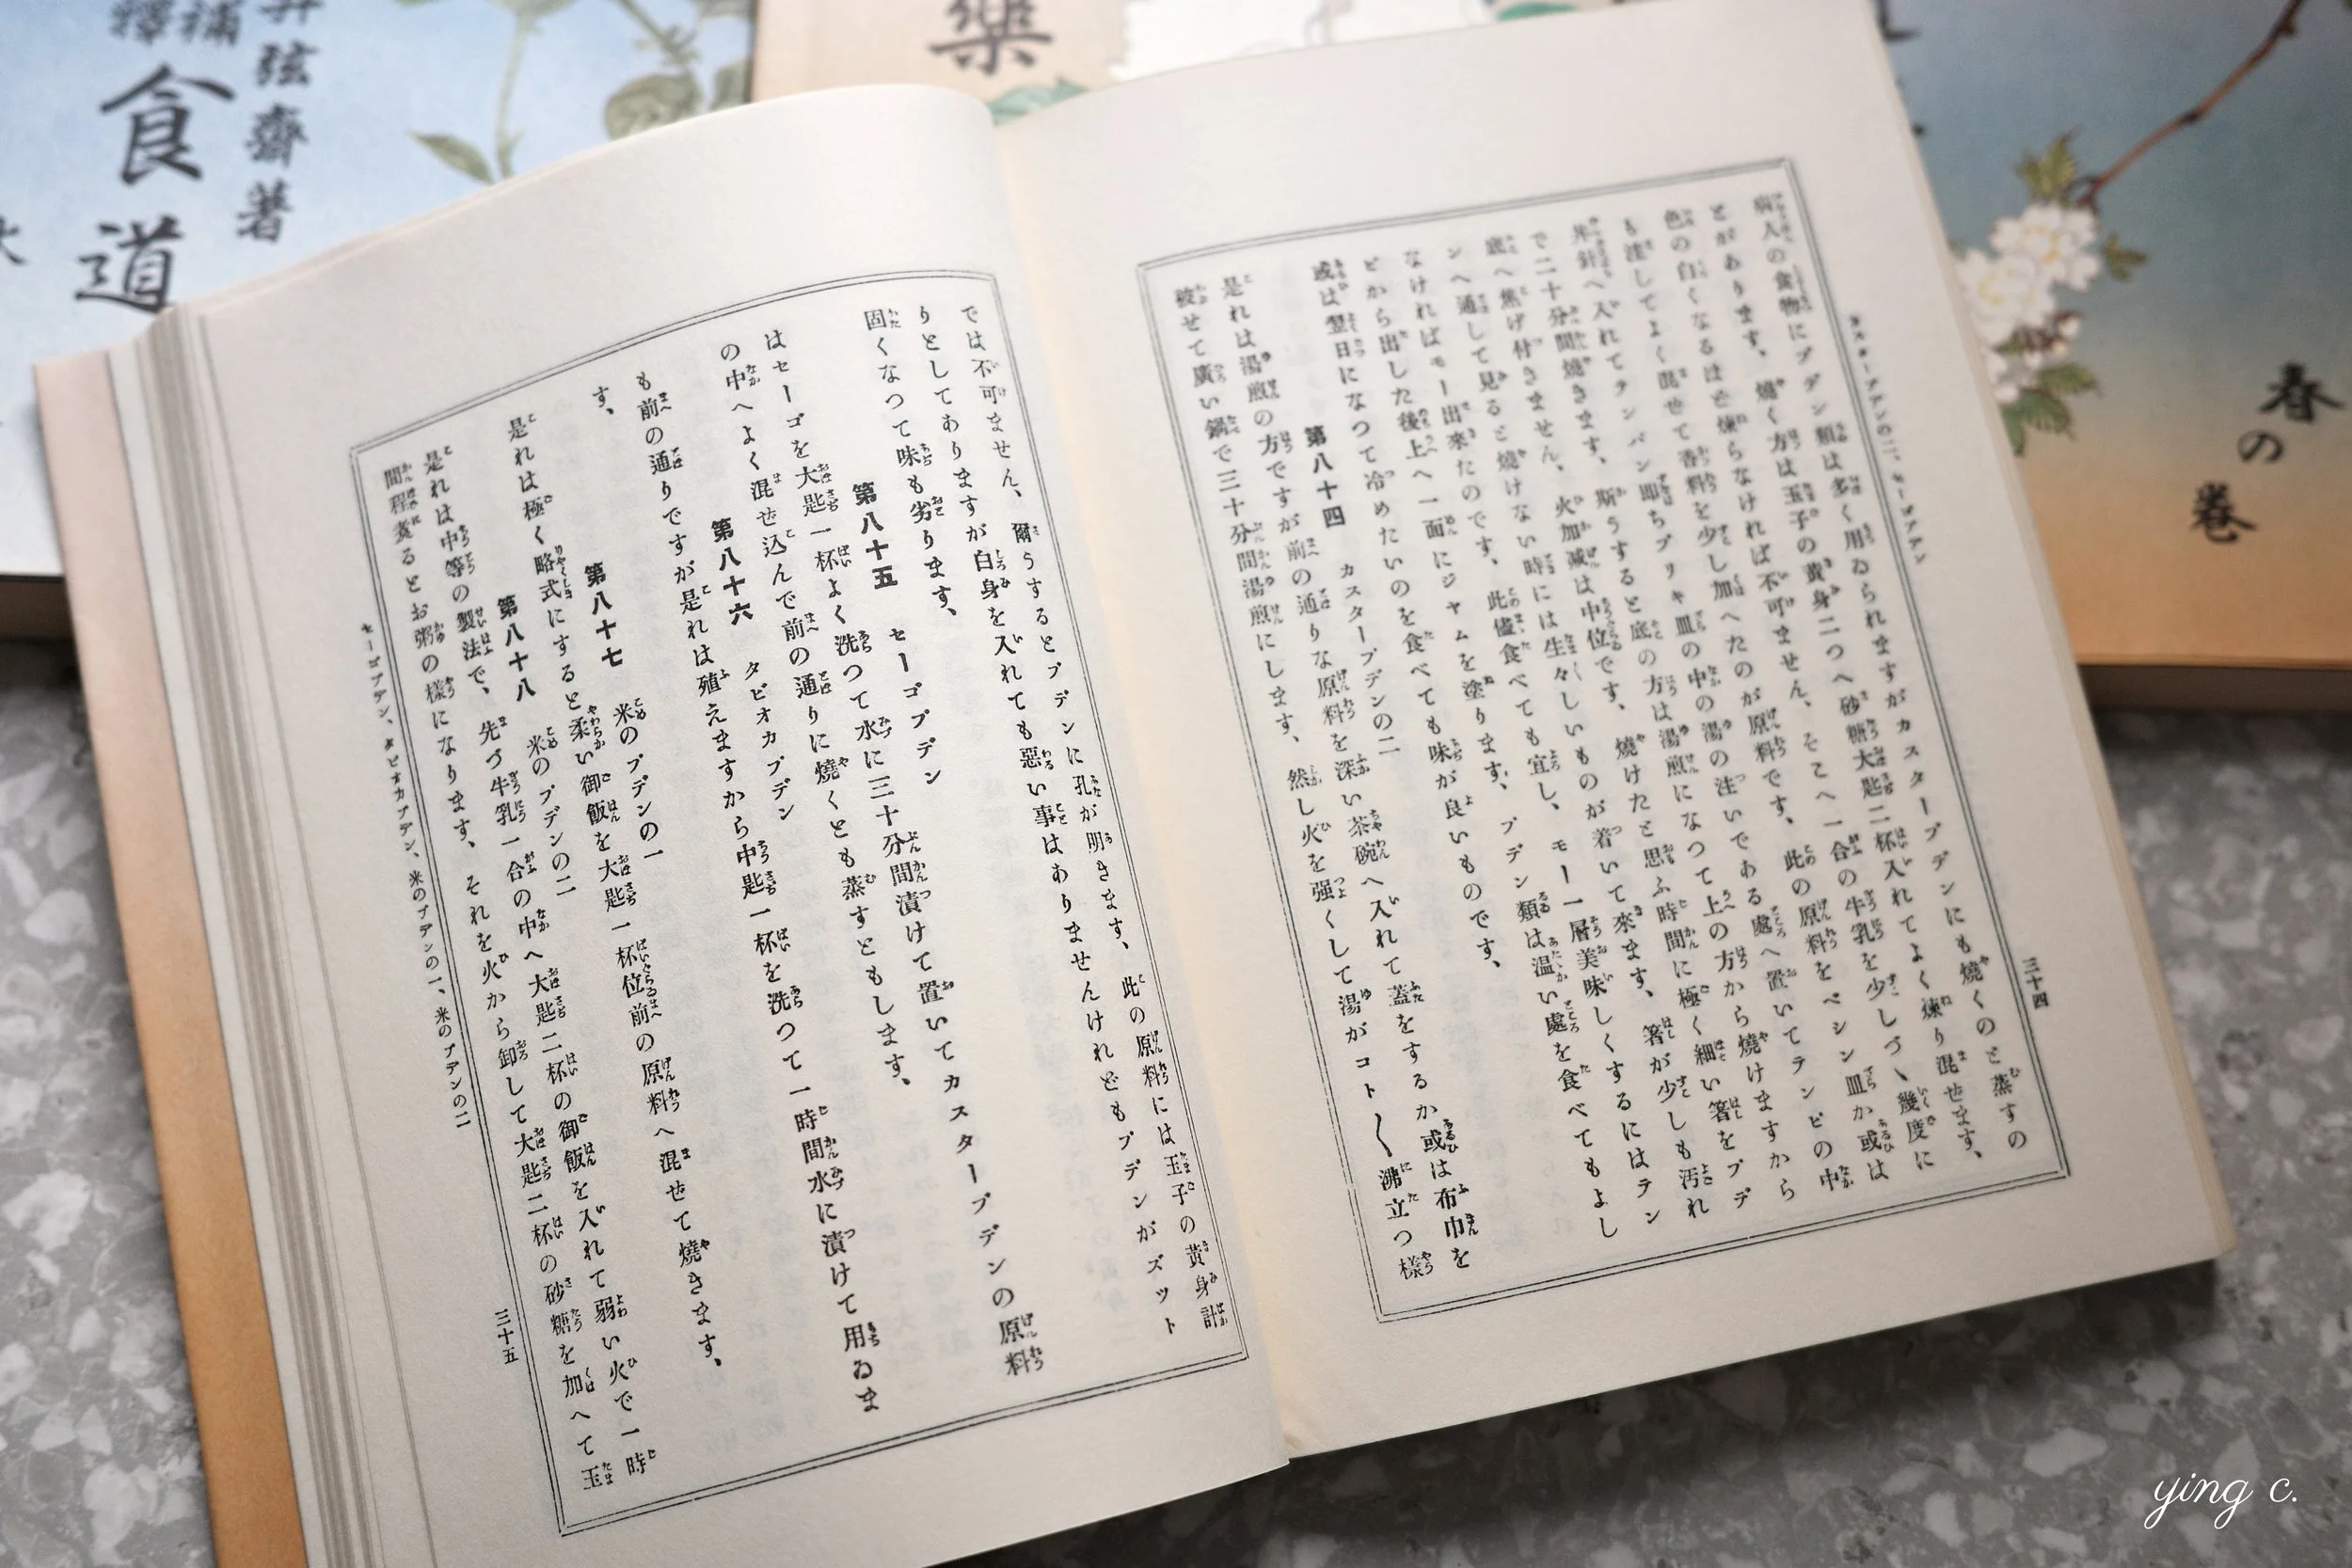 弦齋著
補
食道
樂
春の巻
カスタープデンの二、セーゴプデン
三十四
病人の食物にプデン類は多く用ゐられますがカスタープデンにも燒くのと蒸すの
とがあります、燒く方は玉子の黄身二つへ砂糖大匙二杯入れてよく煉り混ぜます、
色の白くなるほど煉らなければ不可ません、そこへ一合の牛乳を少しづゝ幾度に
も注してよく混せて香料を少し加へたのが原料です、此の原料をベシン皿か或は
丼鉢へ入れてテンパン即ちブリキ皿の中の湯の注いである處へ置いてテンピの中
で二十分間燒きます、斯うすると底の方は湯煎になつて上の方から燒けますから
底へ焦げ付きません、火加減は中位です、燒けたと思ふ時間に極く細い箸をプデ
ンへ通して見ると燒けない時には生々しいものが着いて來ます、箸が少しも汚れ
なければモー出來たのです、此儘食べても宜し、モー一層美味しくするにはテン
ピから出した後上へ一面にジヤムを塗ります、プデン類は温い處を食べてもよし
或は翌日になつて冷めたいのを食べても味が良いものです、
第八十四 カスタープデンの二
是れは湯煎の方ですが前の通りな原料を深い茶碗へ入れて蓋をするか或は布巾を
被せて廣い鍋で三十分間湯煎にします、然し火を强くして湯がコト〳〵沸立つ樣
では不可ません、爾うするとプデンに孔が明きます、此の原料には玉子の黄身計
りとしてありますが白身を入れても惡い事はありませんけれどもプデンがズット
固くなつて味も劣ります、
第八十五 セーゴプデン
はセーゴを大匙一杯よく洗つて水に三十分間漬けて置いてカスタープデンの原料
の中へよく混せ込んで前の通りに燒くとも蒸すともします、
第八十六 タピオカプデン
も前の通りですが是れは殖えますから中匙一杯を洗つて一時間水に漬けて用ゐま
す、
第八十七 米のプデンの一
是れは極く略式にすると柔い御飯を大匙一杯位前の原料へ混せて燒きます、
第八十八 米のプデンの二
是れは中等の製法で、先づ牛乳一合の中へ大匙二杯の御飯を入れて弱い火で一時
間程煑るとお粥の樣になります、それを火から卸して大匙二杯の砂糖を加へて玉
セーゴプデン、タピオカプデン、米のプデンの一、米のプデンの二
三十五
ying c.